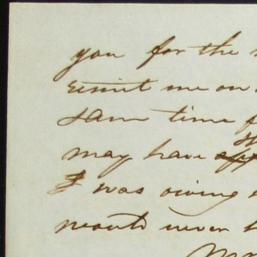 you for the
remit me on
same time
may have
I was owing
would never